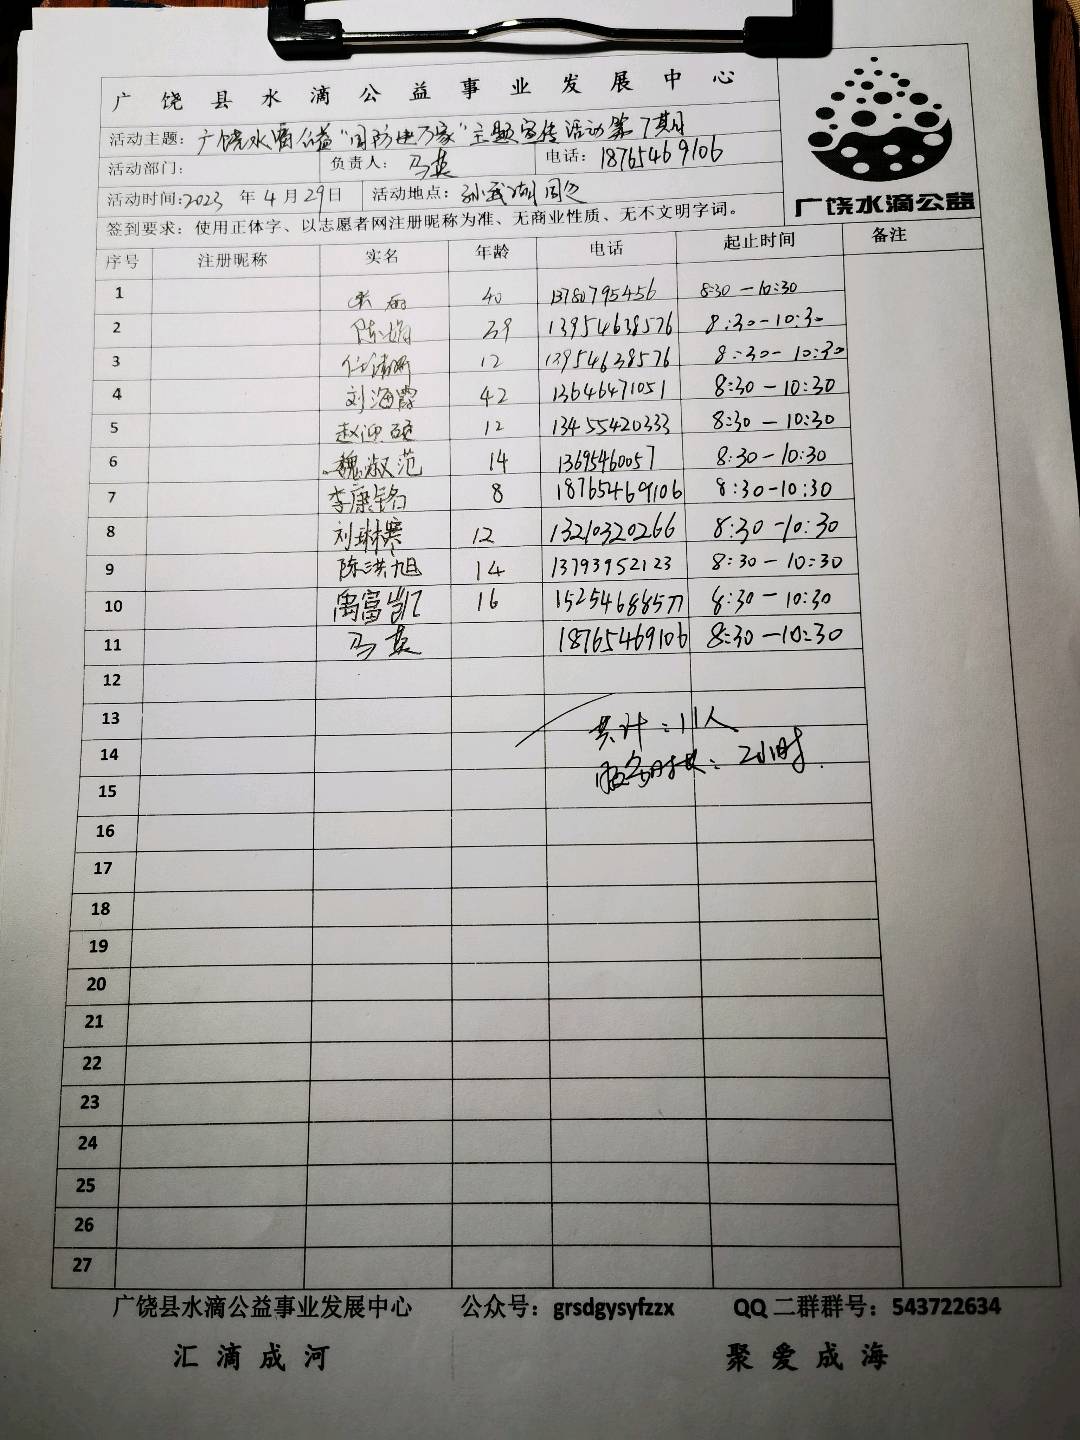 广饶县水滴公益事业发展中心
广饶水滴公益
活动主题：广饶水滴公益"国防进万家"主题宣传活动第7期
活动部门： 负责人：马英 电话：18765469106
活动时间：2023 年 4 月 29 日 活动地点：孙武湖周边
签到要求：使用正体字、以志愿者网注册昵称为准、无商业性质、无不文明字词。
序号 注册昵称 实名 年龄 电话 起止时间 备注
1 40 13780795456 8:30-10:30
2 39 13954638576 8:30-10:30
3 12 13954638576 8:30-10:30
4 刘海霞 42 13646471051 8:30-10:30
5 赵迎硕 12 13455420333 8:30-10:30
6 魏淑范 14 13695460057 8:30-10:30
7 李康铭 8 18765469106 8:30-10:30
8 刘琳 12 13210320266 8:30-10:30
9 陈洪旭 14 13793952123 8:30-10:30
10 禹富凯 16 15254688577 8:30-10:30
11 马英 18765469106 8:30-10:30
12
13 共计：11人
14 服务时长：2小时.
15
16
17
18
19
20
21
22
23
24
25
26
27
广饶县水滴公益事业发展中心 公众号：grsdgysyfzzx QQ 二群群号：543722634
汇滴成河 聚爱成海